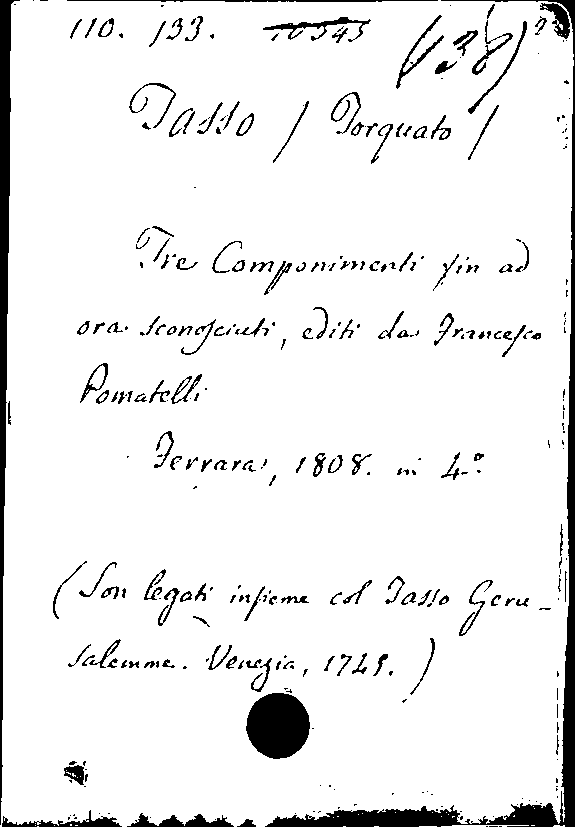 110. 133. 10545 (138)2
Tasso / Torquato /
Tre Componimenti fin ad
ora sconosciuti, editi da Francesco
Pomatelli
Ferrara, 1808. in 4.º
(Son legati insieme col Tasso Geru-
salemme. Venezia, 1745.)